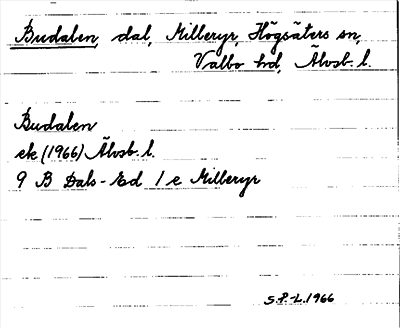 Budalen, dal, Milleryr, Högsäters sn,
Valbo hd, Älvsb. l.
Budalen
ek (1966) Älvsb. l.
9 B Dals-Ed 1 e Milleryr
S.P-L. 1966